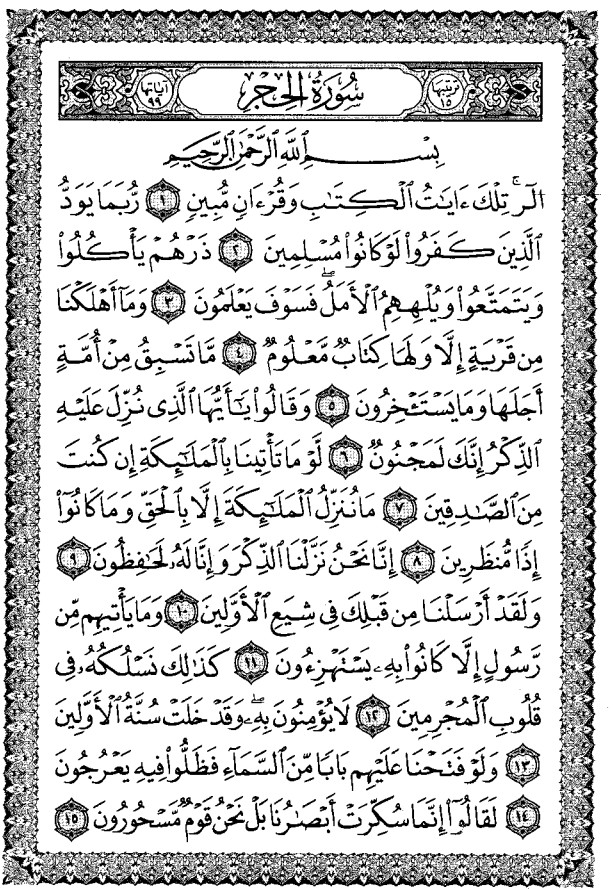 ترتيبها ١٥ سُورَةُ الحِجرِ آياتها ٩٩
بِسْمِ ٱللَّهِ ٱلرَّحْمَٰنِ ٱلرَّحِيمِ
الٓر ۚ تِلْكَ ءَايَٰتُ ٱلْكِتَٰبِ وَقُرْءَانٍ مُّبِينٍ ١ رُّبَمَا يَوَدُّ
ٱلَّذِينَ كَفَرُوا۟ لَوْ كَانُوا۟ مُسْلِمِينَ ٢ ذَرْهُمْ يَأْكُلُوا۟
وَيَتَمَتَّعُوا۟ وَيُلْهِهِمُ ٱلْأَمَلُ ۖ فَسَوْفَ يَعْلَمُونَ ٣ وَمَآ أَهْلَكْنَا
مِن قَرْيَةٍ إِلَّا وَلَهَا كِتَابٌ مَّعْلُومٌ ٤ مَّا تَسْبِقُ مِنْ أُمَّةٍ
أَجَلَهَا وَمَا يَسْتَـْٔخِرُونَ ٥ وَقَالُوا۟ يَٰٓأَيُّهَا ٱلَّذِى نُزِّلَ عَلَيْهِ
ٱلذِّكْرُ إِنَّكَ لَمَجْنُونٌ ٦ لَّوْ مَا تَأْتِينَا بِٱلْمَلَٰٓئِكَةِ إِن كُنتَ
مِنَ ٱلصَّٰدِقِينَ ٧ مَا نُنَزِّلُ ٱلْمَلَٰٓئِكَةَ إِلَّا بِٱلْحَقِّ وَمَا كَانُوٓا۟
إِذًا مُّنظَرِينَ ٨ إِنَّا نَحْنُ نَزَّلْنَا ٱلذِّكْرَ وَإِنَّا لَهُۥ لَحَٰفِظُونَ ٩
وَلَقَدْ أَرْسَلْنَا مِن قَبْلِكَ فِى شِيَعِ ٱلْأَوَّلِينَ ١٠ وَمَا يَأْتِيهِم مِّن
رَّسُولٍ إِلَّا كَانُوا۟ بِهِۦ يَسْتَهْزِءُونَ ١١ كَذَٰلِكَ نَسْلُكُهُۥ فِى
قُلُوبِ ٱلْمُجْرِمِينَ ١٢ لَا يُؤْمِنُونَ بِهِۦ ۖ وَقَدْ خَلَتْ سُنَّةُ ٱلْأَوَّلِينَ
١٣ وَلَوْ فَتَحْنَا عَلَيْهِم بَابًا مِّنَ ٱلسَّمَآءِ فَظَلُّوا۟ فِيهِ يَعْرُجُونَ
١٤ لَقَالُوٓا۟ إِنَّمَا سُكِّرَتْ أَبْصَٰرُنَا بَلْ نَحْنُ قَوْمٌ مَّسْحُورُونَ ١٥